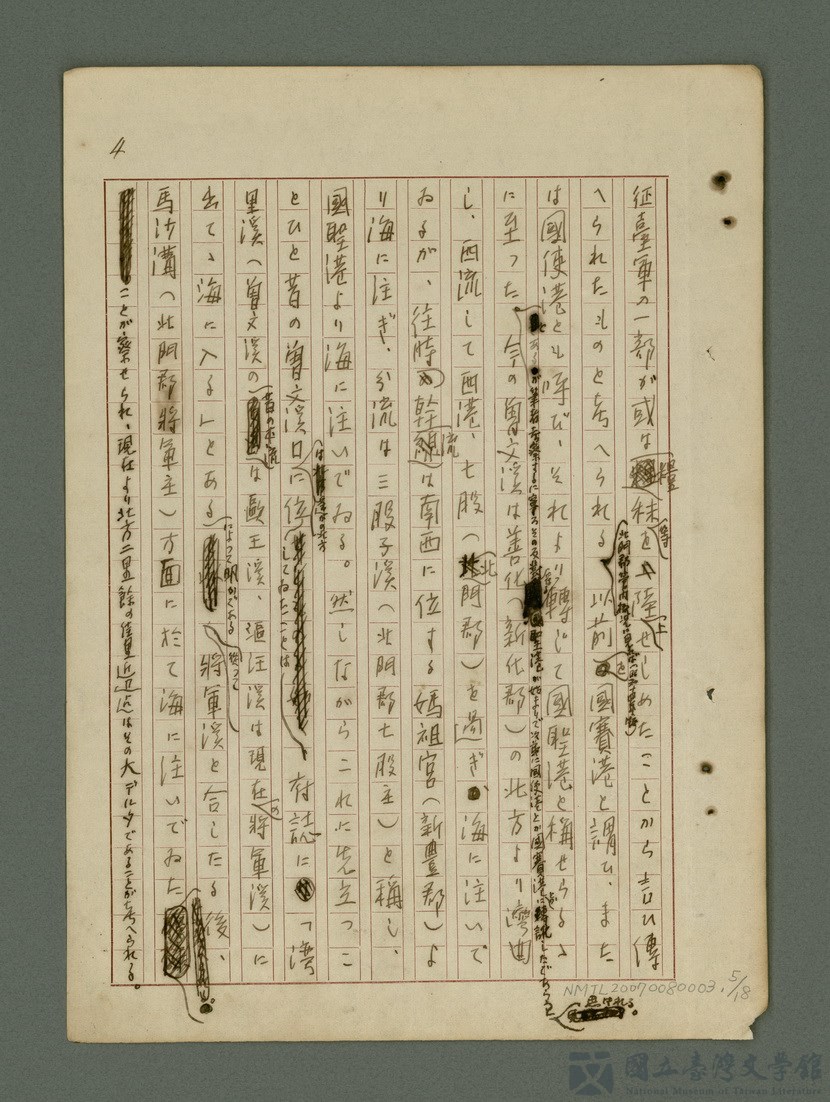 4
征臺軍の一部が或は糧秣を上陸せしめたことから言ひ傳
へられたものと考へられる 以前 國賽港と謂ひ、また
は國使港とも呼び、それより轉じて國聖港と稱せらるゝ
に至つた
今の曽文溪は善化(新化郡)の北方より灣曲
し、西流して西港、七股(北門郡)を過ぎ海に注いで
ゐるが、往時の幹流は南西に位する媽祖宮(新豊郡)よ
り海に注ぎ、分流は三股子溪(北門郡七股主)と稱し、
國聖港より海に注いでゐる。然しながらこれに先立つこ
とひと昔の曽文溪口は
北方
に位してゐたことは、府誌に「灣
里溪(曽文溪の昔の本流)は歐王溪、漚汪溪は現在の將軍溪)に
出て、海に入る」とある
によつて明かである
從つて
將軍溪と合したる後、
馬沙溝(北門郡將軍主)方面に於て海に注いでゐた
ことが察せられ、現在より北方二里餘の佳里附近はその大デルタであることが考へられる。
思はれる。
NMTL20070080003. 5/18
國立臺灣文学館
National Museum of Taiwan Literature